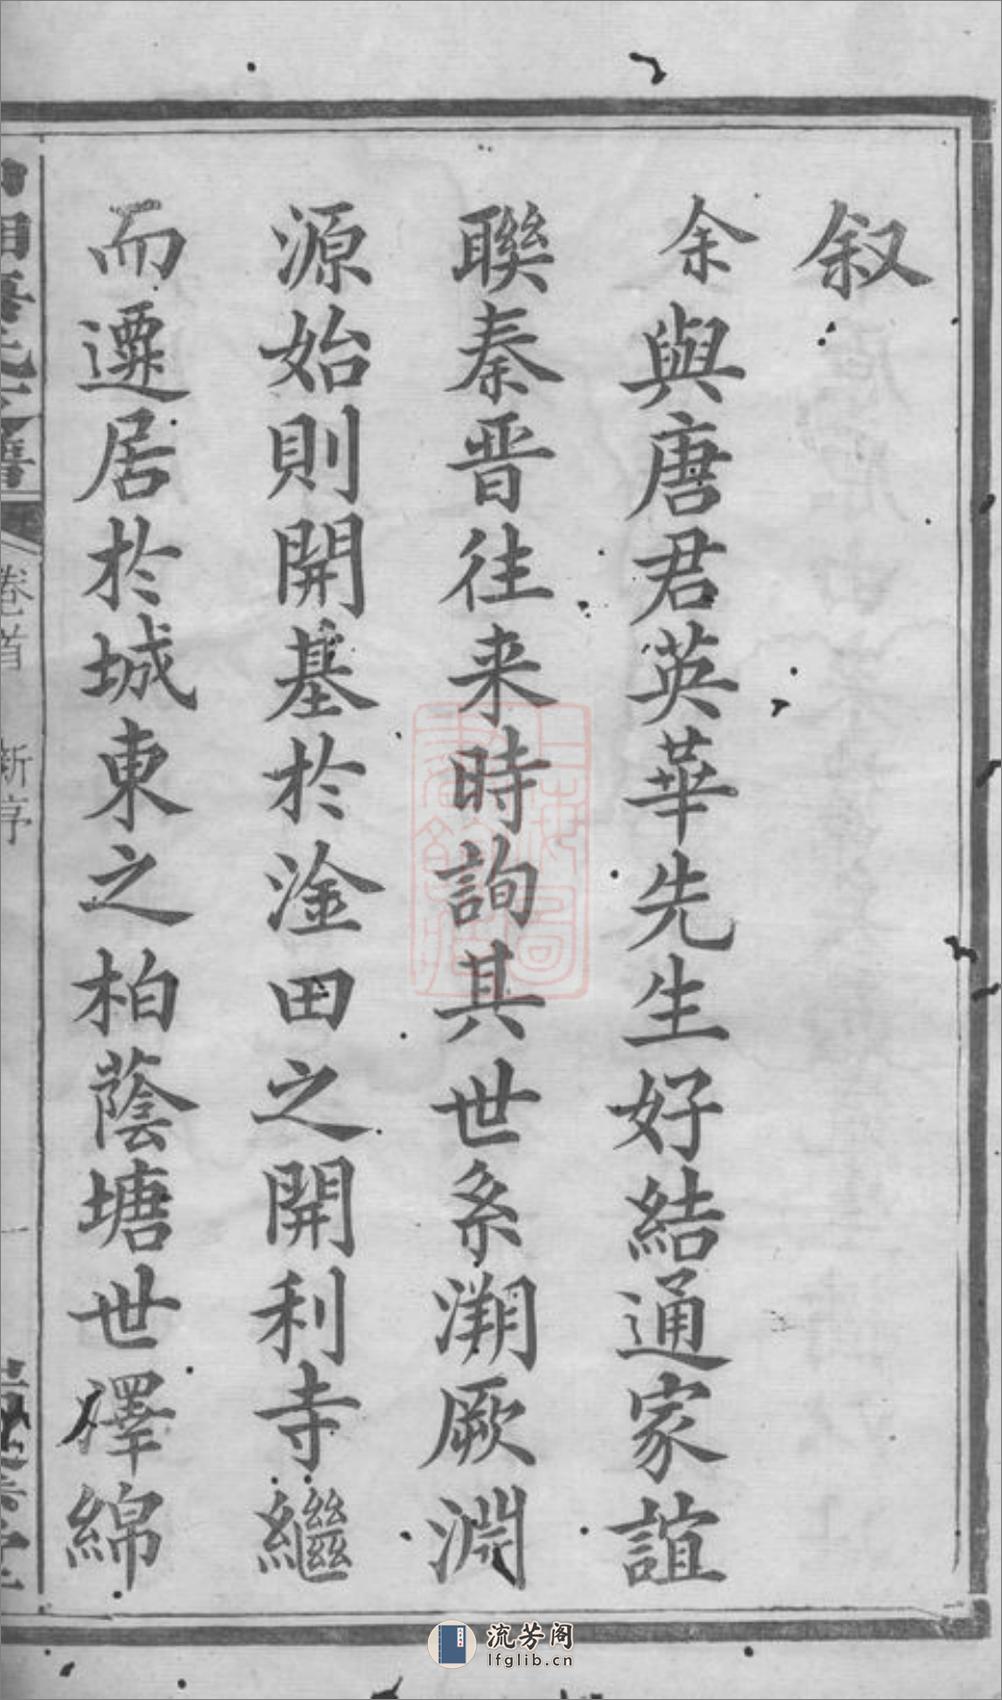 叙
余與唐君英華先生好結通家誼
聯秦晋往来時詢其世系溯厥淵
源始則開基於淦田之開利寺繼
而遷居於城東之柏蔭塘世澤綿
卷首 新序 一
流芳阁
lfglib.cn